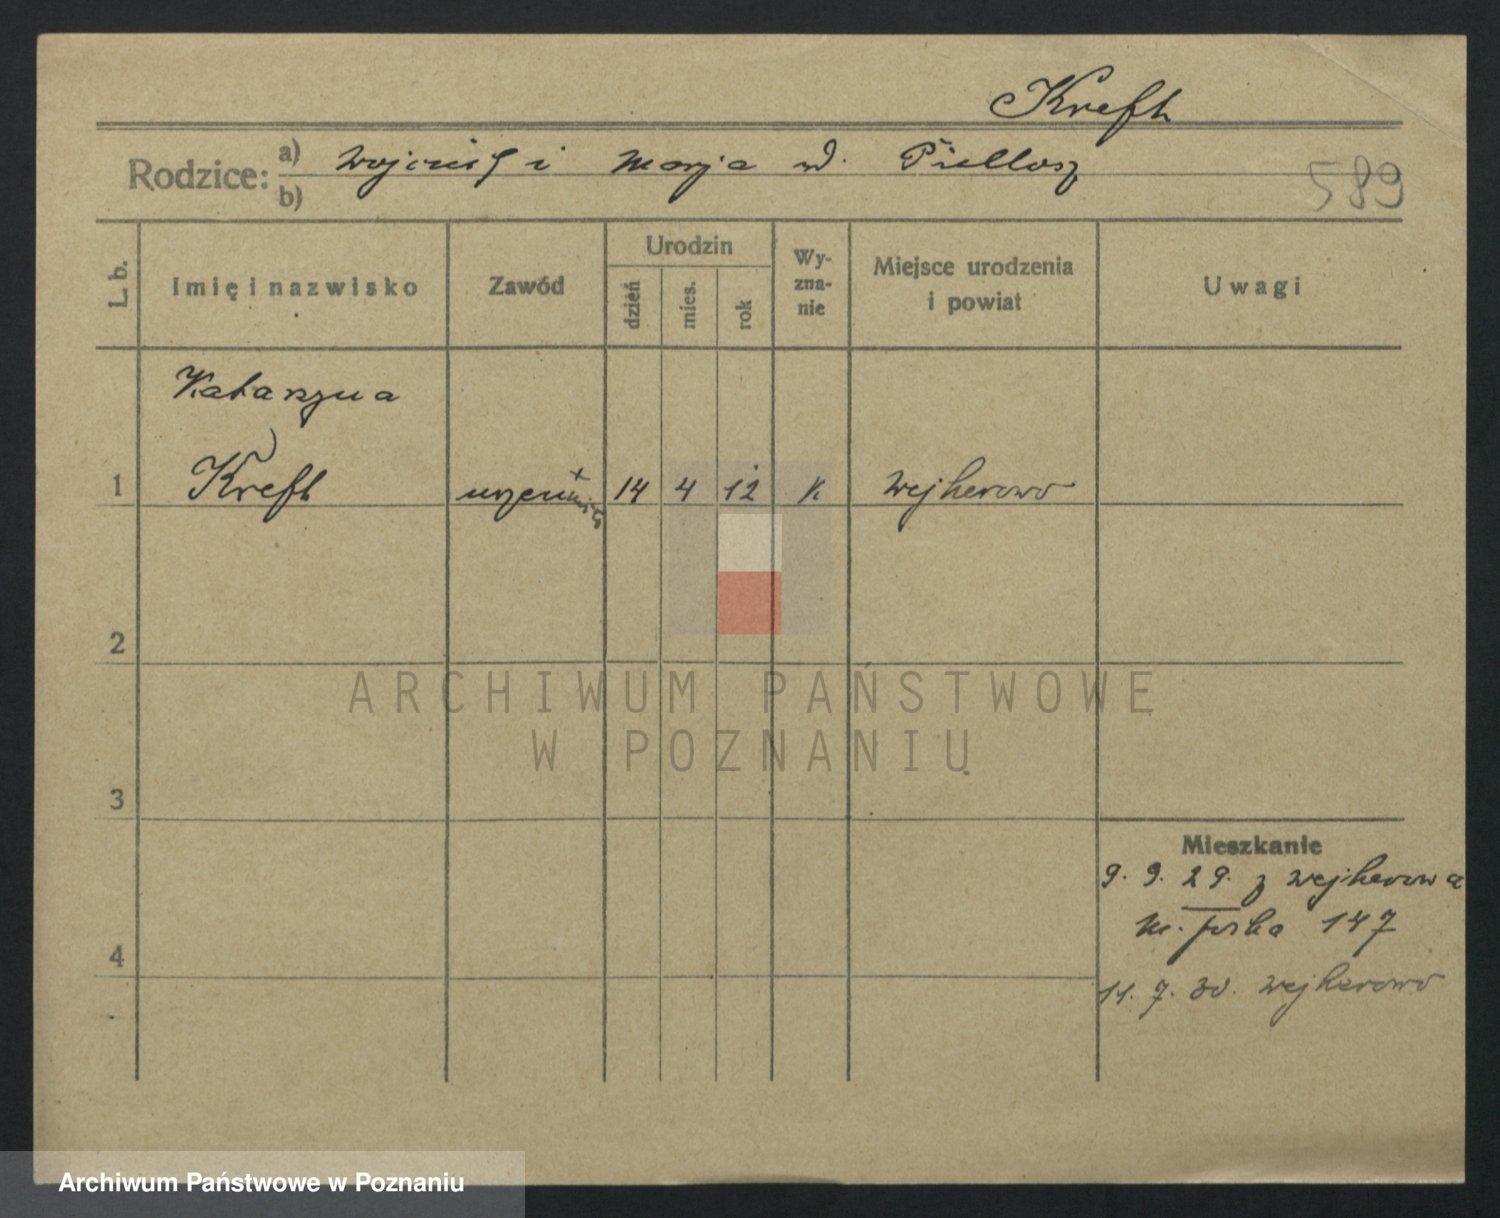 Kreft
Rodzice: a) Wojciech i Marja
b)
589
L. b.
Imię i nazwisko
Zawód
Urodzin
dzień
mies.
rok
Wy-
zna-
nie
Miejsce urodzenia
i powiat
Uwagi
Katarzyna
1 Kreft 14 4 12 k. Wejherowo
2
3
4
Mieszkanie
9. 9. 29. z Wejherowa
147
11. 7. 30. Wejherowo
ARCHIWUM PAŃSTWOWE
W POZNANIU
Archiwum Państwowe w Poznaniu